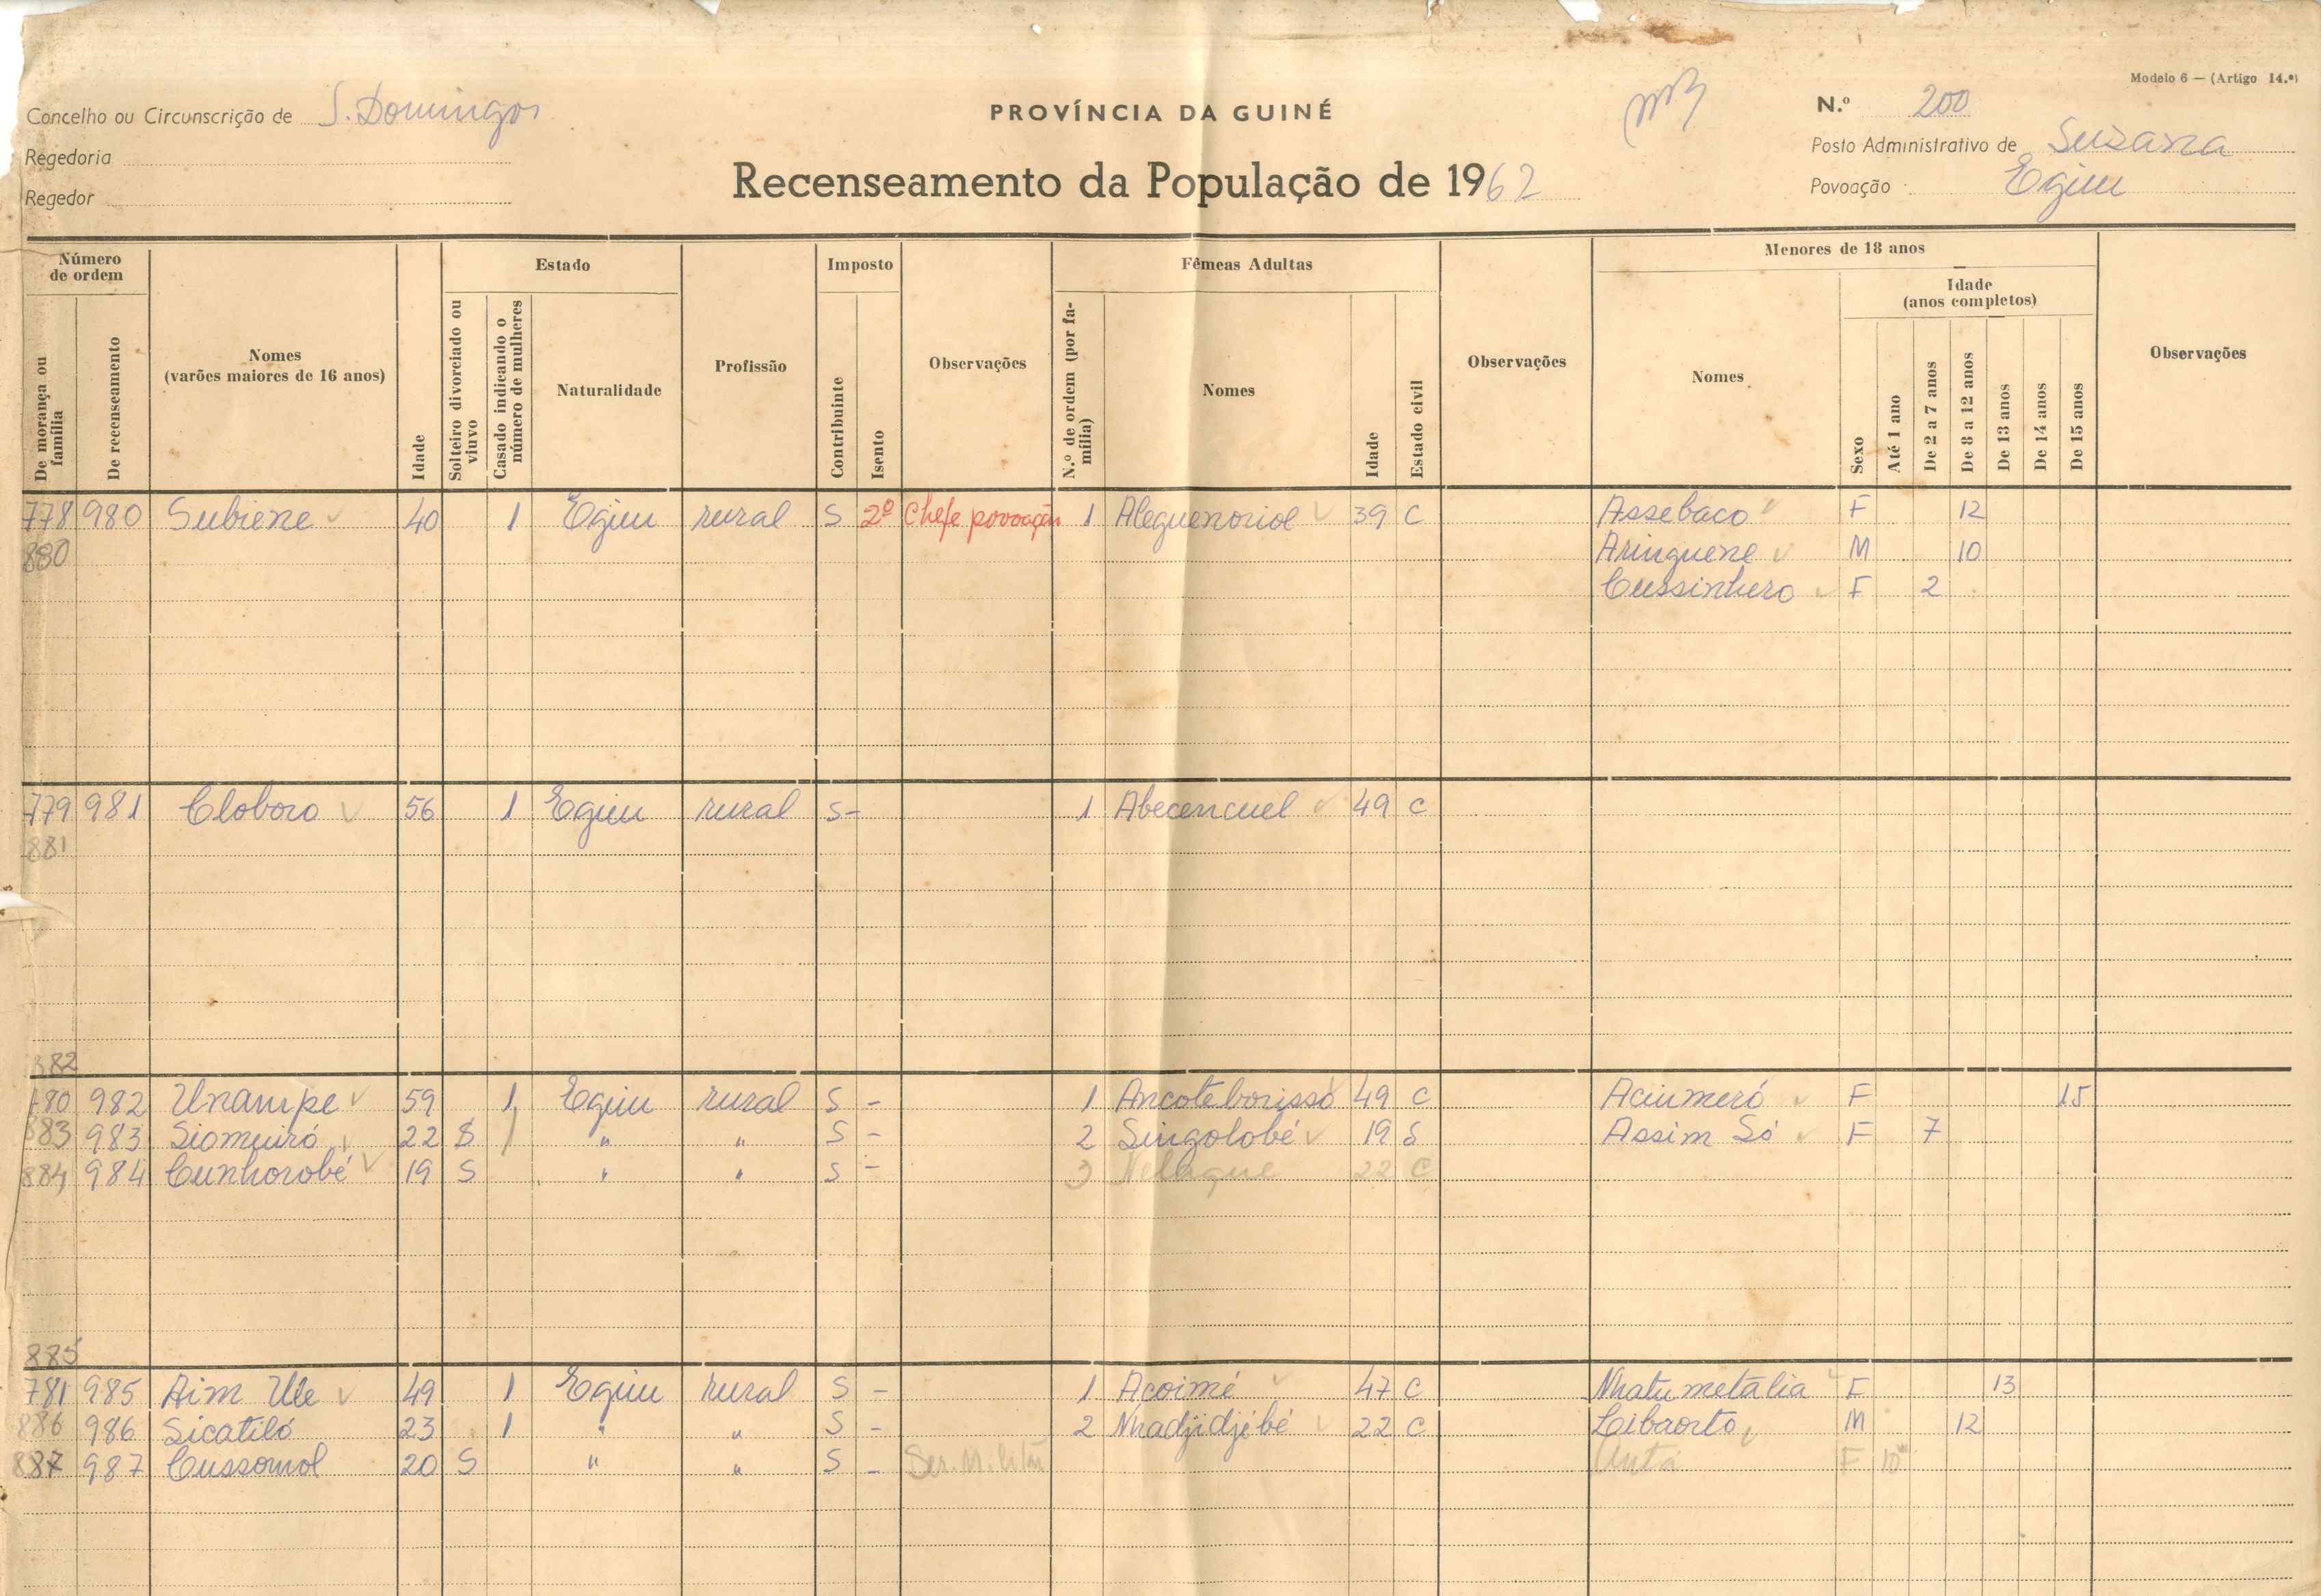 Modelo 6 — (Artigo 14.º)
Concelho ou Circunscrição de S. Domingos
PROVÍNCIA DA GUINÉ
N.º 200
Regedoria
Posto Administrativo de Suzana
Regedor
Recenseamento da População de 1962
Povoação Egim
Número de ordem
Estado
Imposto
Fêmeas Adultas
Menores de 18 anos
Idade (anos completos)
De morança ou família
De recenseamento
Nomes (varões maiores de 16 anos)
Idade
Solteiro divorciado ou viuvo
Casado indicando o número de mulheres
Naturalidade
Profissão
Contribuinte
Isento
Observações
N.º de ordem (por família)
Nomes
Idade
Estado civil
Observações
Nomes
Sexo
Até 1 ano
De 2 a 7 anos
De 8 a 12 anos
De 13 anos
De 14 anos
De 15 anos
Observações
778 980 Subiene 40 1 Egim rural S 2º Chefe povoação 1 Aleguenoriol 39 C Assebaco F 12
880 Aringuene M 10
Cussinhero F 2
779 981 Cloboro 56 1 Egim rural S - 1 Abecencuel 49 C
881
882
780 982 Unampe 59 1 Egim rural S - 1 Ancoteborisso 49 C Aciumeró F 15
883 983 Siomeuró 22 S 1 " " S - 2 Singolobé 19 S Assim Só F 7
884 984 Cunhorobé 19 S " " S - 3 22 C
885
781 985 Aim Ule 49 1 Egim rural S - 1 Acoimé 47 C Nhatumetalia F 13
886 986 Sicatiló 23 1 " " S - 2 Nhadjidjébé 22 C Libaorto M 12
887 987 Cussomol 20 S " " S - Ser. Militar F 10